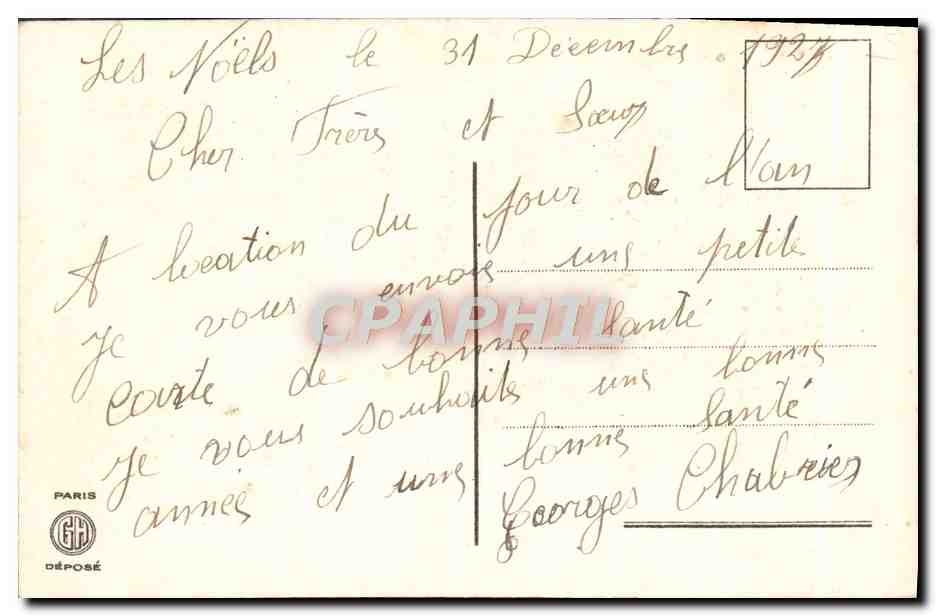 Les Noëls le 31 Décembre. 1927
Cher Frère et Sœur
A location du jour de l'an
Je vous envoie une petite
carte de bonne santé
Je vous souhaite une bonne
année et une bonne santé
Georges Chabrier
CPAPHIL
PARIS
GH
DÉPOSÉ